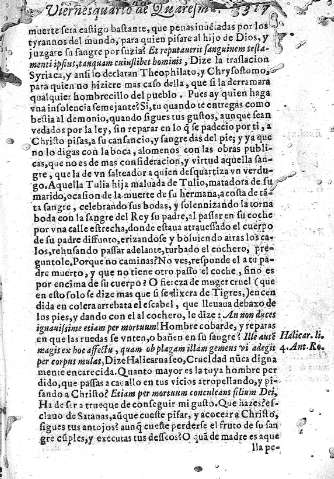 Viernes quarto de Quaresm 327
muerte sera castigo bastante, que penas inuētadas por los
tyrannos del mundo, para quien pisare al hijo de Dios, y
juzgare sa sangre por suzia? Et reputaueris sanguinem testa-
menti ipsius, tanquam cuiuslibet hominis, Dize la traslacion
Syriaca, y ansi lo declaran Theophilato, y Chrysostomo,
para quien no hiziere mas caso della, que si la derramara
qualquier hombrecillo del pueblo. Pues ay quien haga
vna insolencia semejante? Si, tu quando te entregas como
bestia al demonio, quando sigues tus gustos, aunque sean
vedados por la ley, sin reparar en lo q̃ se padecio por ti, a
Christo pisas, a su cansancio, y sangre das del pie; y ya que
no lo digas con la boca, alomenos con las obras publi-
cas, que no es de mas consideracion, y virtud aquella san-
gre, que la de vn salteador a quien desquartiza vn verdu-
go. Aquella Tulia hija maluada de Tulio, matadora de su
marido, ocasion de la muerte de su hermana, acosta de tã-
ta sangre, celebrando sus bodas, y solennizando la torna
boda con la sangre del Rey su padre, al passar en su coche
por vna calle estrecha, donde estaua atrauessado el cuerpo
de su padre difunto, erizandose y bo
los, rehusando passar adelante, turbado el cochero, pre-
guntole, Porque no caminas? No ves, responde el a tu pa-
dre muerto, y que no tiene otro passo el coche, sino es
por encima de su cuerpo? O fiereza de muger cruel (que
en esto solo se dize mas que si se dixera de Tigres) encen
dida en colera arrebata el escabel, que lleuaua debaxo de
los pies, y dando con el al cochero, le dize: An non duces
ignauissime etiam per mortuum? Hombre cobarde, y reparas
en que las ruedas se vnten, o bañen en su sangre? Ille autē Halicar. li.
magis ex hoc affectu, quam ob plagam illam gemens vi adegit 4. Ant. Ro.
per corpus mulas, Dize Halicarnaseo, Cruel dad nūca digna
mente encarecida. Quanto mayor es la tuya hombre per
dido, que passas a cauallo en tus vicios atropellando, y pi-
sando a Christo? Etiam per mortuum conculcans filium Dei,
Ha de ser a trueque de conseguir mi gusto. Que hazes? es-
clauo de Satanas, aũque cueste pisar, y acocear a Christo,
sigues tus antojos? aunq̃ cueste perderse el fruto de su san
gre cũples, y executas tus desseos? O quã de madre es aque
lla pe-